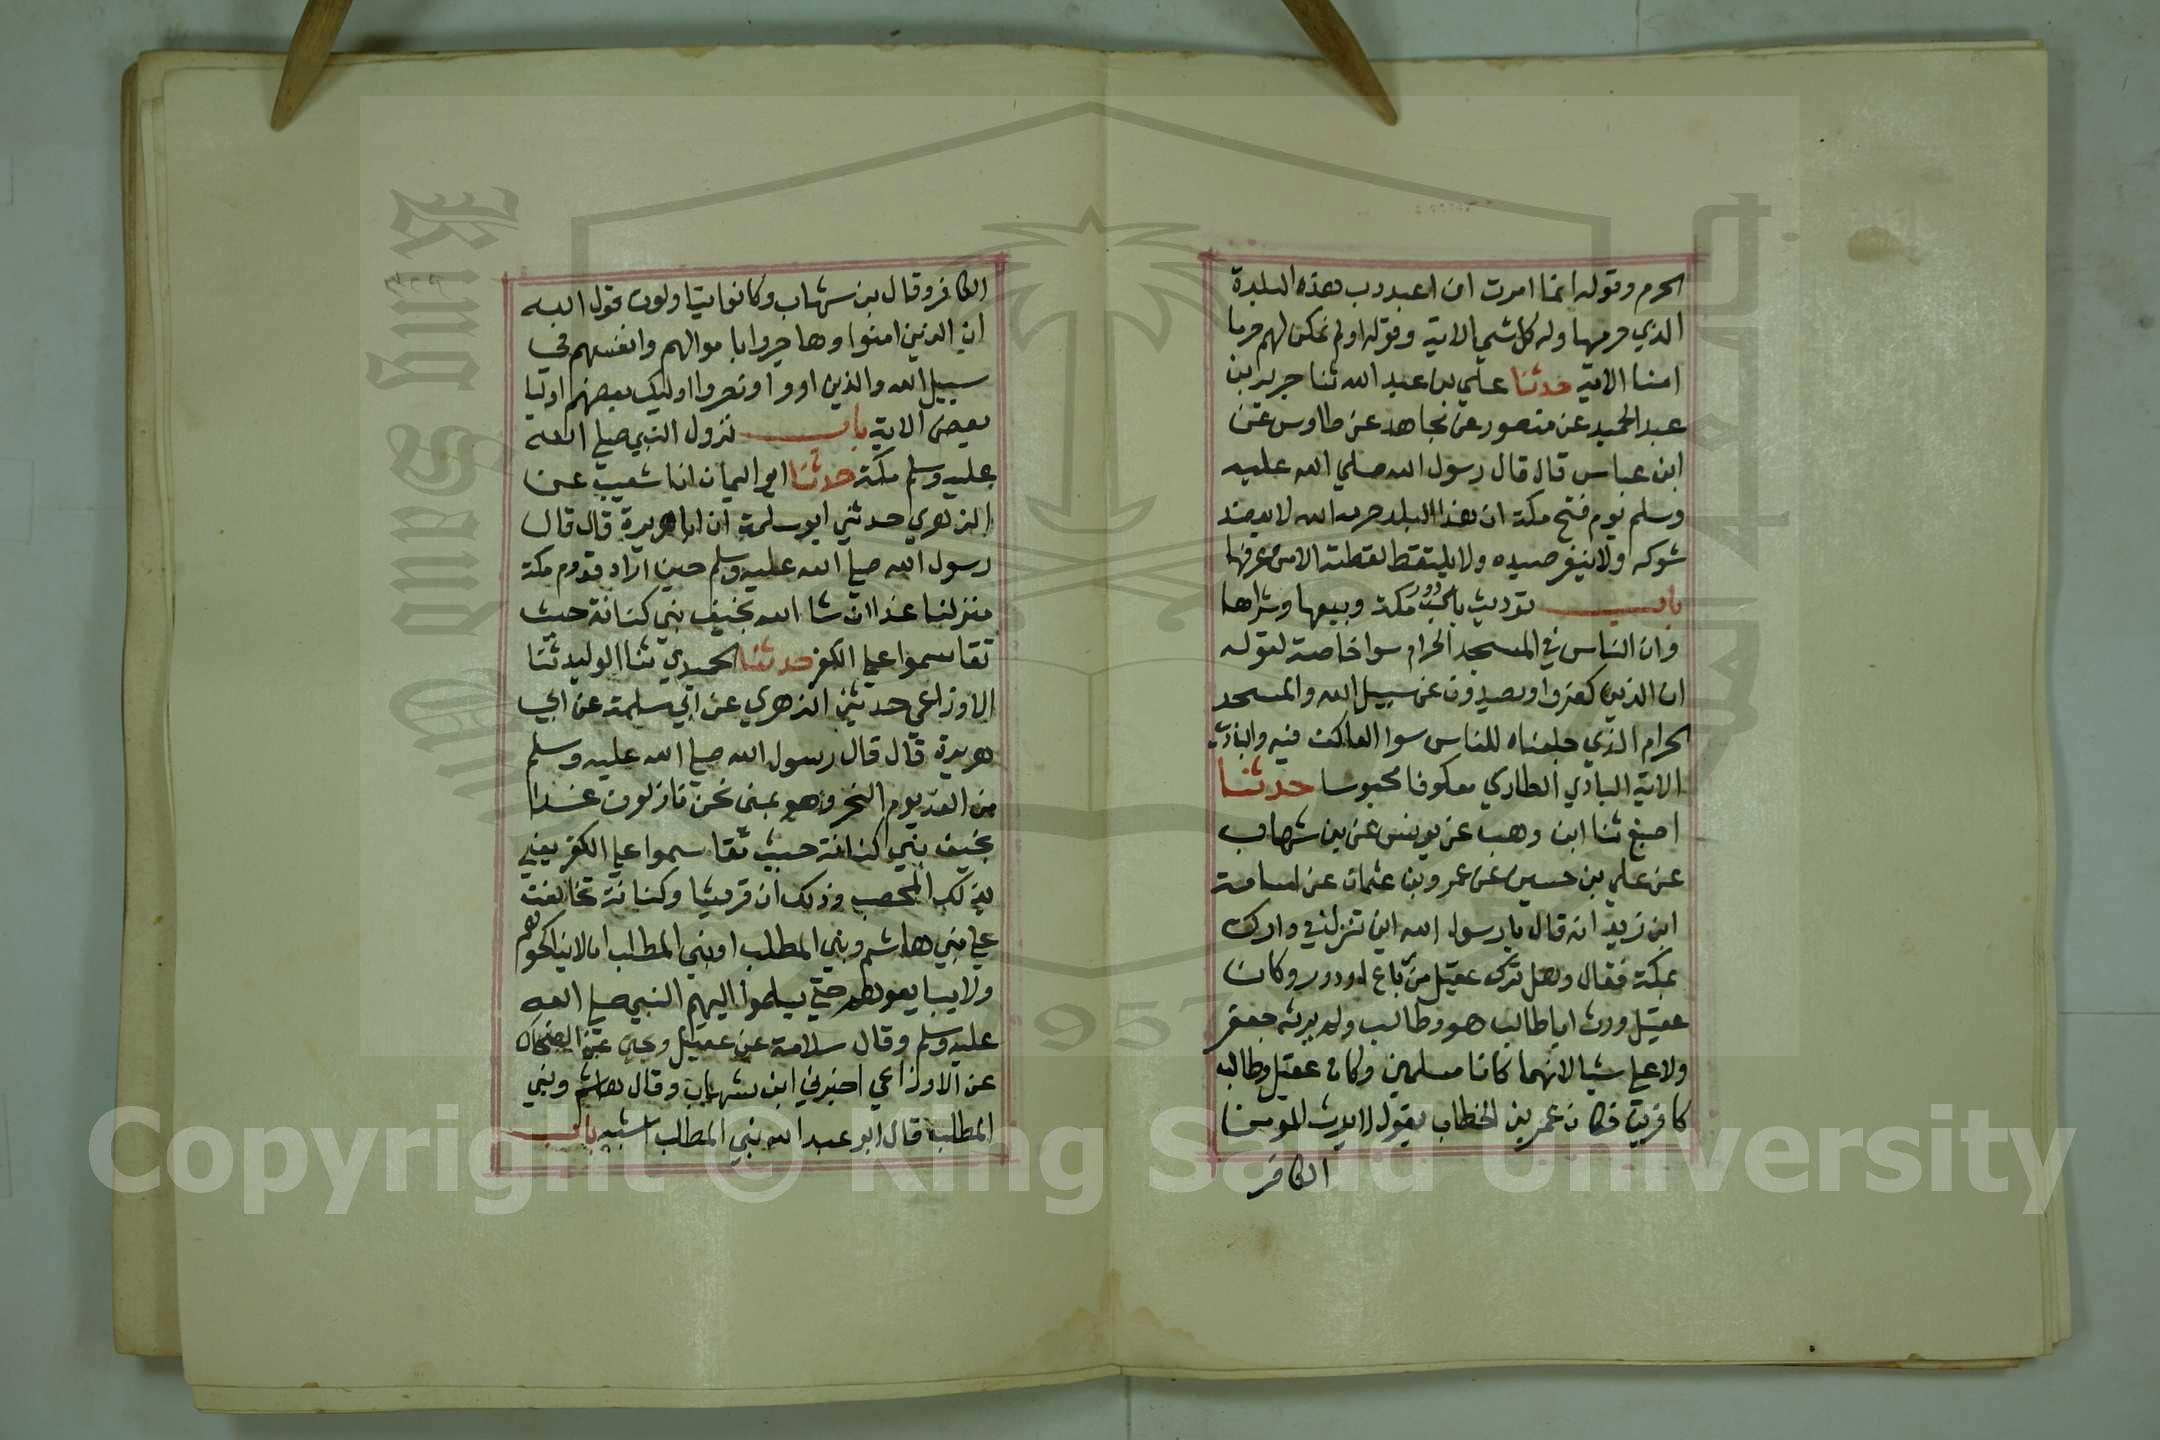 الحرم وقوله انما امرت ان اعبد رب هذه البلدة
الذي حرمها وله كل شي الاية وقوله اولم نمكن لهم حرما
امنا الاية حدثنا علي بن عبد الله ثنا جرير ابن
عبد الحميد عن منصور عن مجاهد عن طاوس عن
ابن عباس قال قال رسول الله صلي الله عليه
وسلم يوم فتح مكة ان هذا البلد حرمه الله لا يعضد
شوكه ولا ينفر صيده ولا يلتقط لقطته الا من عرفها
باب توريث دور مكة وبيعها وشراها
وان الناس في المسجد الحرام سوا خاصة لقوله
ان الذين كفروا ويصدون عن سبيل الله والمسجد
الحرام الذي جعلناه للناس سوا العاكف فيه والباد
الاية البادي الطاري معكوفا محبوسا حدثنا
اصبغ ثنا ابن وهب عن يونس عن بن شهاب
عن علي بن حسين عن عمرو بن عثمان عن اسامة
ابن زيد انه قال يا رسول الله اين تنزل في دارك
بمكة فقال وهل ترك عقيل من رباع او دور وكان
عقيل ورث ابا طالب هو وطالب ولم يرثه جعفر
ولا علي شيا لانهما كانا مسلمين وكان عقيل وطالب
كافرين فكان عمر بن الخطاب يقول لا يرث المومن
الكافر
الكافر وقال بن شهاب وكانوا يتاولون قول الله
ان الذين امنوا وهاجروا باموالهم وانفسهم في
سبيل الله والذين اووا ونصروا اوليك بعضهم اوليا
بعض الاية باب نزول النبي صلي الله
عليه وسلم مكة حدثنا ابو اليمان انا شعيب عن
الزهري حدثني ابو سلمة ان ابا هريرة قال قال
رسول الله صلي الله عليه وسلم حين اراد قدوم مكة
منزلنا غدا ان شا الله بخيف بني كنانة حيث
تقاسموا علي الكفر حدثنا الحميدي ثنا الوليد ثنا
الاوزاعي حدثني الزهري عن ابي سلمة عن ابي
هريرة قال قال رسول الله صلي الله عليه وسلم
من الغد يوم النحر وهو بمنى نحن نازلون غدا
بخيف بني كنانة حيث تقاسموا علي الكفر يعني
بذلك المحصب وذلك ان قريشا وكنانة تحالفت
علي بني هاشم وبني المطلب او بني المطلب ان لا يناكحوهم
ولا يبايعوهم حتي يسلموا اليهم النبي صلي الله
عليه وسلم وقال سلامة عن عقيل ويحيي عن الضحاك
عن الاوزاعي اخبرني ابن شهاب وقال هاشم وبني
المطلب قال ابو عبد الله بني المطلب اشبه باب
King Saud University
1957
Copyright © King Saud University